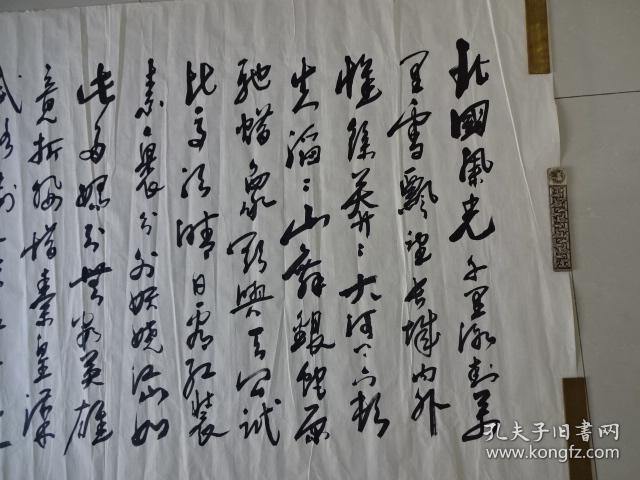 北國風光千里冰封萬
里雪飄望長城内外
惟餘莽〻大河上下頓
失滔〻山舞銀蛇原
馳蠟象欲與天公試
比高須晴日看紅裝
素裹分外妖嬈江山如
此多嬌引無數英雄
竟折腰惜秦皇漢
武
孔夫子旧书网
www.kongfz.com